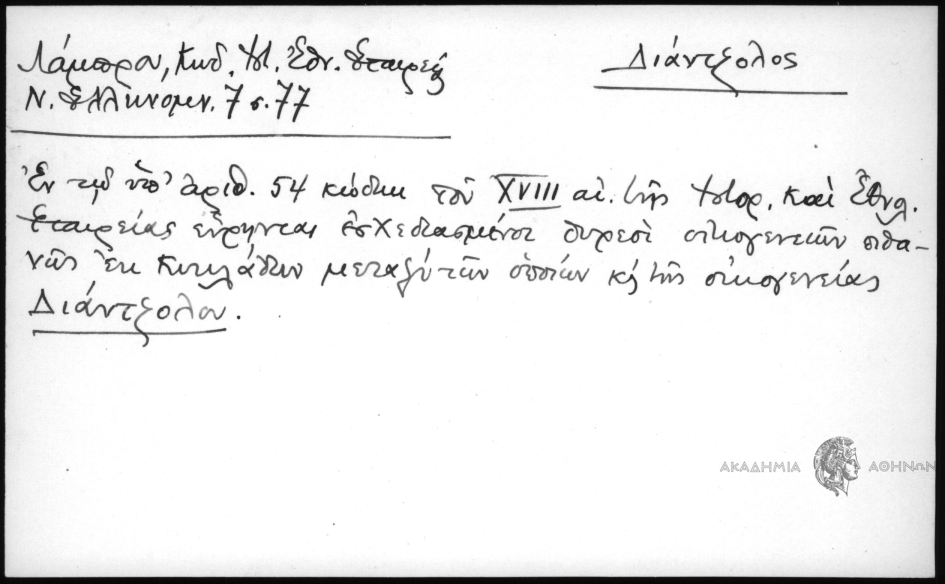 Λάμπρου, Κωδ. Ἱστ. Ἐθν. Ἑταιρεί. Διάντζολος
Ν. Ἑλληνομν. 7 σ. 77
Ἐν τῷ ὑπ' ἀριθ. 54 κώδικι τοῦ XVIII αἰ. τῆς Ἱστορ. καὶ Ἐθνολ.
Ἑταιρείας εὕρηνται ἐσχεδιασμένοι θυρεοὶ οἰκογενειῶν πιθα-
νῶς ἐκ Κυκλάδων μεταξὺ τῶν ὁποίων κ̀ τῆς οἰκογενείας
Διάντζολου.
ΑΚΑΔΗΜΙΑ ΑΘΗΝΩΝ